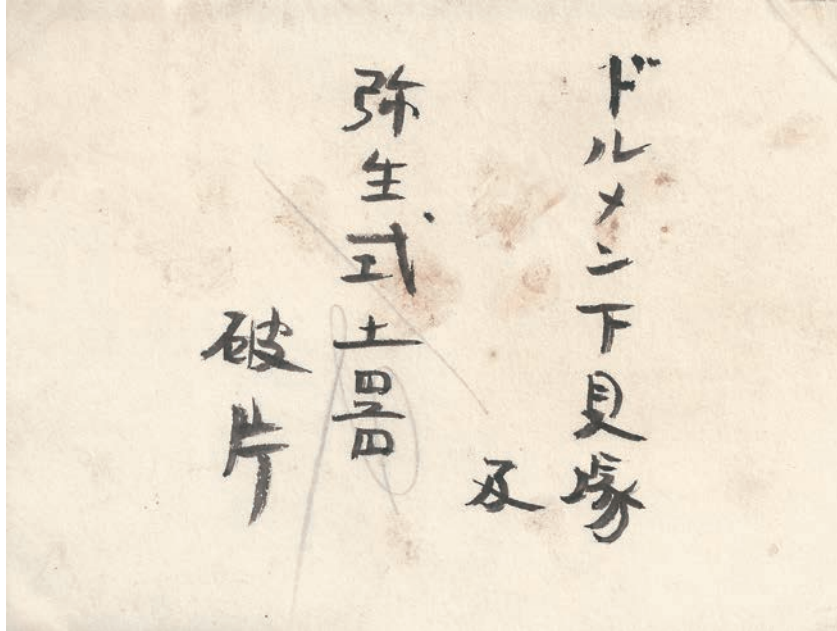 ドルメン下貝塚
及
弥生式土器
破片